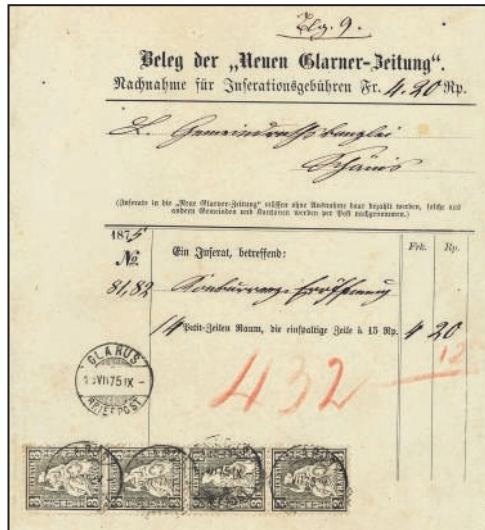 Blg. 9.
Beleg der „Neuen Glarner-Zeitung“.
Nachnahme für Inserationsgebühren Fr. 4.20 Rp.
L. Gemeindrathskanzlei
Schänis
(Inserate in die „Neue Glarner-Zeitung“ müssen ohne Ausnahme baar bezahlt werden, solche aus
andern Gemeinden und Kantonen werden per Post nachgenommen.)
1875
No.
Ein Inserat, betreffend:
Frk. Rp.
81,82 Eröffnung
14 Petit-Zeilen Raum, die einspaltige Zeile à 15 Rp. 4 20
12
432
GLARUS
VII 75 IX -
BRIEFPOST